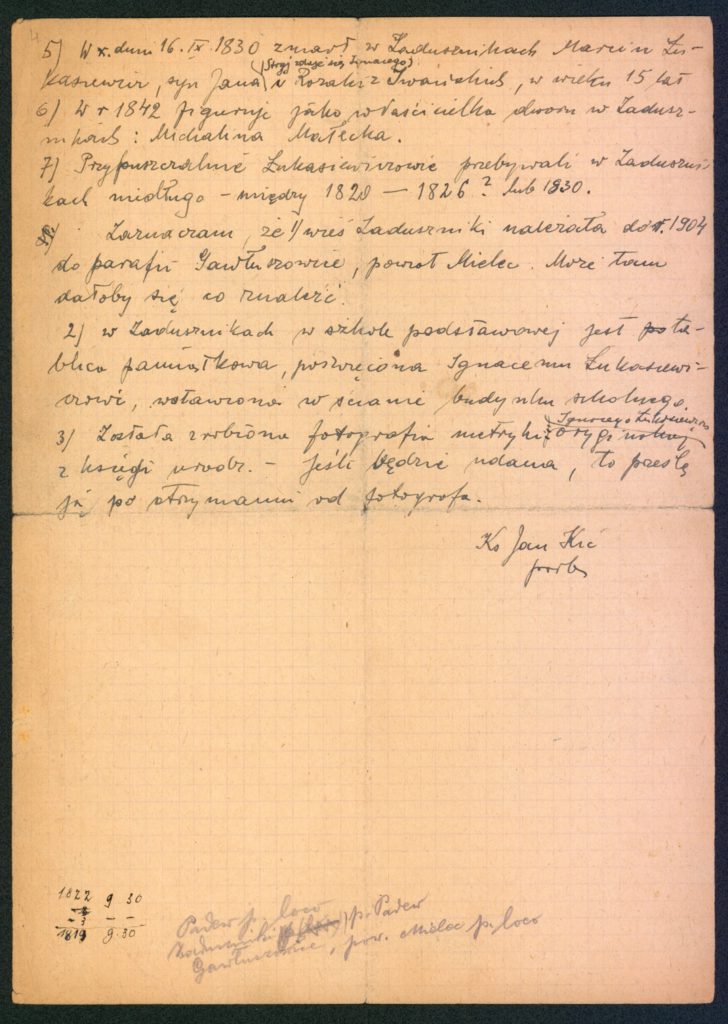 4
5) W r. dnia 16. IX 1830 zmarł w Zadusznikach Marcin Łu-
kasiewicz, syn Jana (Stryj zdaje się Ignacego) i Rozalii z Iwańskich, w wieku 15 lat
6) W r 1842 figuruje jako właścicielka dworu w Zadusz-
nikach: Michalina Małecka.
7) Przypuszczalnie Łukasiewiczowie przebywali w Zaduszni-
kach niedługo – między 1820 — 1826? lub 1830.
Zaznaczam, że 1/ wieś Zaduszniki należała do r. 1904
do parafii Gawłuszowice, powiat Mielec. Może tam
dałoby się co znaleźć.
2) w Zadusznikach w szkole podstawowej jest ta-
blica pamiątkowa, poświęcona Ignacemu Łukasiewi-
czowi, wstawiona w ścianie budynku szkolnego.
3) Została zrobiona fotografia metryki Ignacego Łukasiewicza orygi nalnej
z księgi urodz. – Jeśli będzie udana, to prześlę
ją po otrzymaniu od fotografa.
Ks Jan Kic
prob
1822 9 30
- 3 – –
1819 9 30
Padew p. loco
Zaduszniki p. Padew
Gawłuszowice, pow. Mielec p. loco